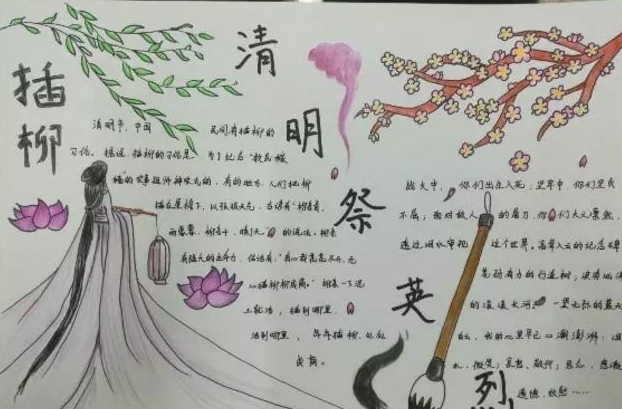 插柳
清明祭英烈
清明节，中国民间有插柳的
习俗。据说，插柳的习俗是为了纪念“教民稼
穑”的农事祖师神农氏的，有的地方，人们把柳
插在屋檐下，以预报天气，古谚有“柳条青，
雨蒙蒙；柳条干，晴了天”的说法。柳条
有强大的生命力，俗话说：“有心栽花花不开，无
心插柳柳成荫。”柳条一下说
土就活，插到哪里，
活到哪里，年年插柳，处处
成荫。
战火中，你们出生入死；坚牢中，你们坚贞
不屈；面对敌人的屠刀，你们大义凛然，
透过泪水审视这个世界。高耸入云的纪念碑
苍劲有力的行道树；波涛
的滚滚长河，一望无际的蓝天
我的心里早已心潮澎湃：泪
水，微笑；哀愁，敬仰；思念，感激
遗憾，欣慰……